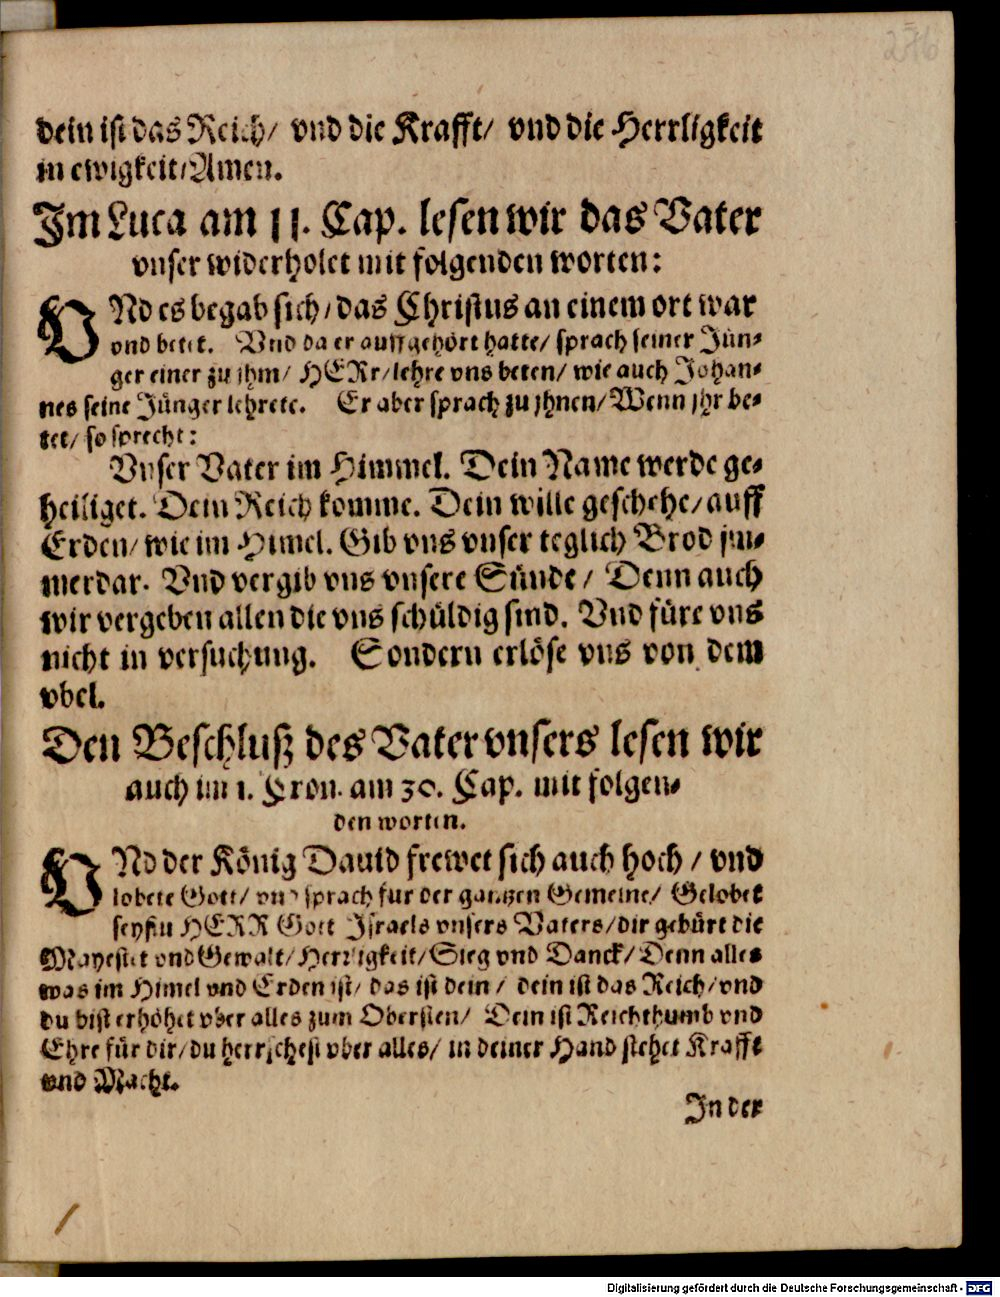 276
dein ist das Reich/ vnd die Krafft/ vnd die Herrligkeit
in ewigkeit/Amen.
Im Luca am 11. Cap. lesen wir das Vater
vnser widerholet mit folgenden worten:
VNd es begab sich/das Christus an einem ort war
vnd betet. Vnd da er auffgehört hatte/ sprach seiner Jün-
ger einer zu jhm/ HERr/lehre vns beten/ wie auch Johan-
nes seine Jünger lehrete. Er aber sprach zu jhnen/Wenn jhr be-
tet/ so sprecht:
Vnser Vater im Himmel. Dein Name werde ge-
heiliget. Dein Reich komme. Dein wille geschehe/auff
Erden/ wie im Himel. Gib vns vnser teglich Brod jm-
merdar. Vnd vergib vns vnsere Sünde/ Denn auch
wir vergeben allen die vns schüldig sind. Vnd füre vns
nicht in versuchung. Sondern erlöse vns von dem
vbel.
Den Beschluß des Vater vnsers lesen wir
auch im 1. Cron. am 30. Cap. mit folgen-
den worten.
VNd der König Dauid frewet sich auch hoch/ vnd
lobete Gott/ vnd sprach für der gantzen Gemeine/ Gelobet
seystu HERR Gott Israels vnsers Vaters/dir gebürt die
Mayestet vnd Gewalt/Herrligkeit/Sieg vnd Danck/Denn alles
was im Himel vnd Erden ist/ das ist dein/ dein ist das Reich/vnd
du bist erhöhet vber alles zum Obersten/ Dein ist Reichthumb vnd
Ehre für dir/du herrschest vber alles/ in deiner Hand stehet Krafft
vnd Macht.
In der
Digitalisierung gefördert durch die Deutsche Forschungsgemeinschaft - DFG